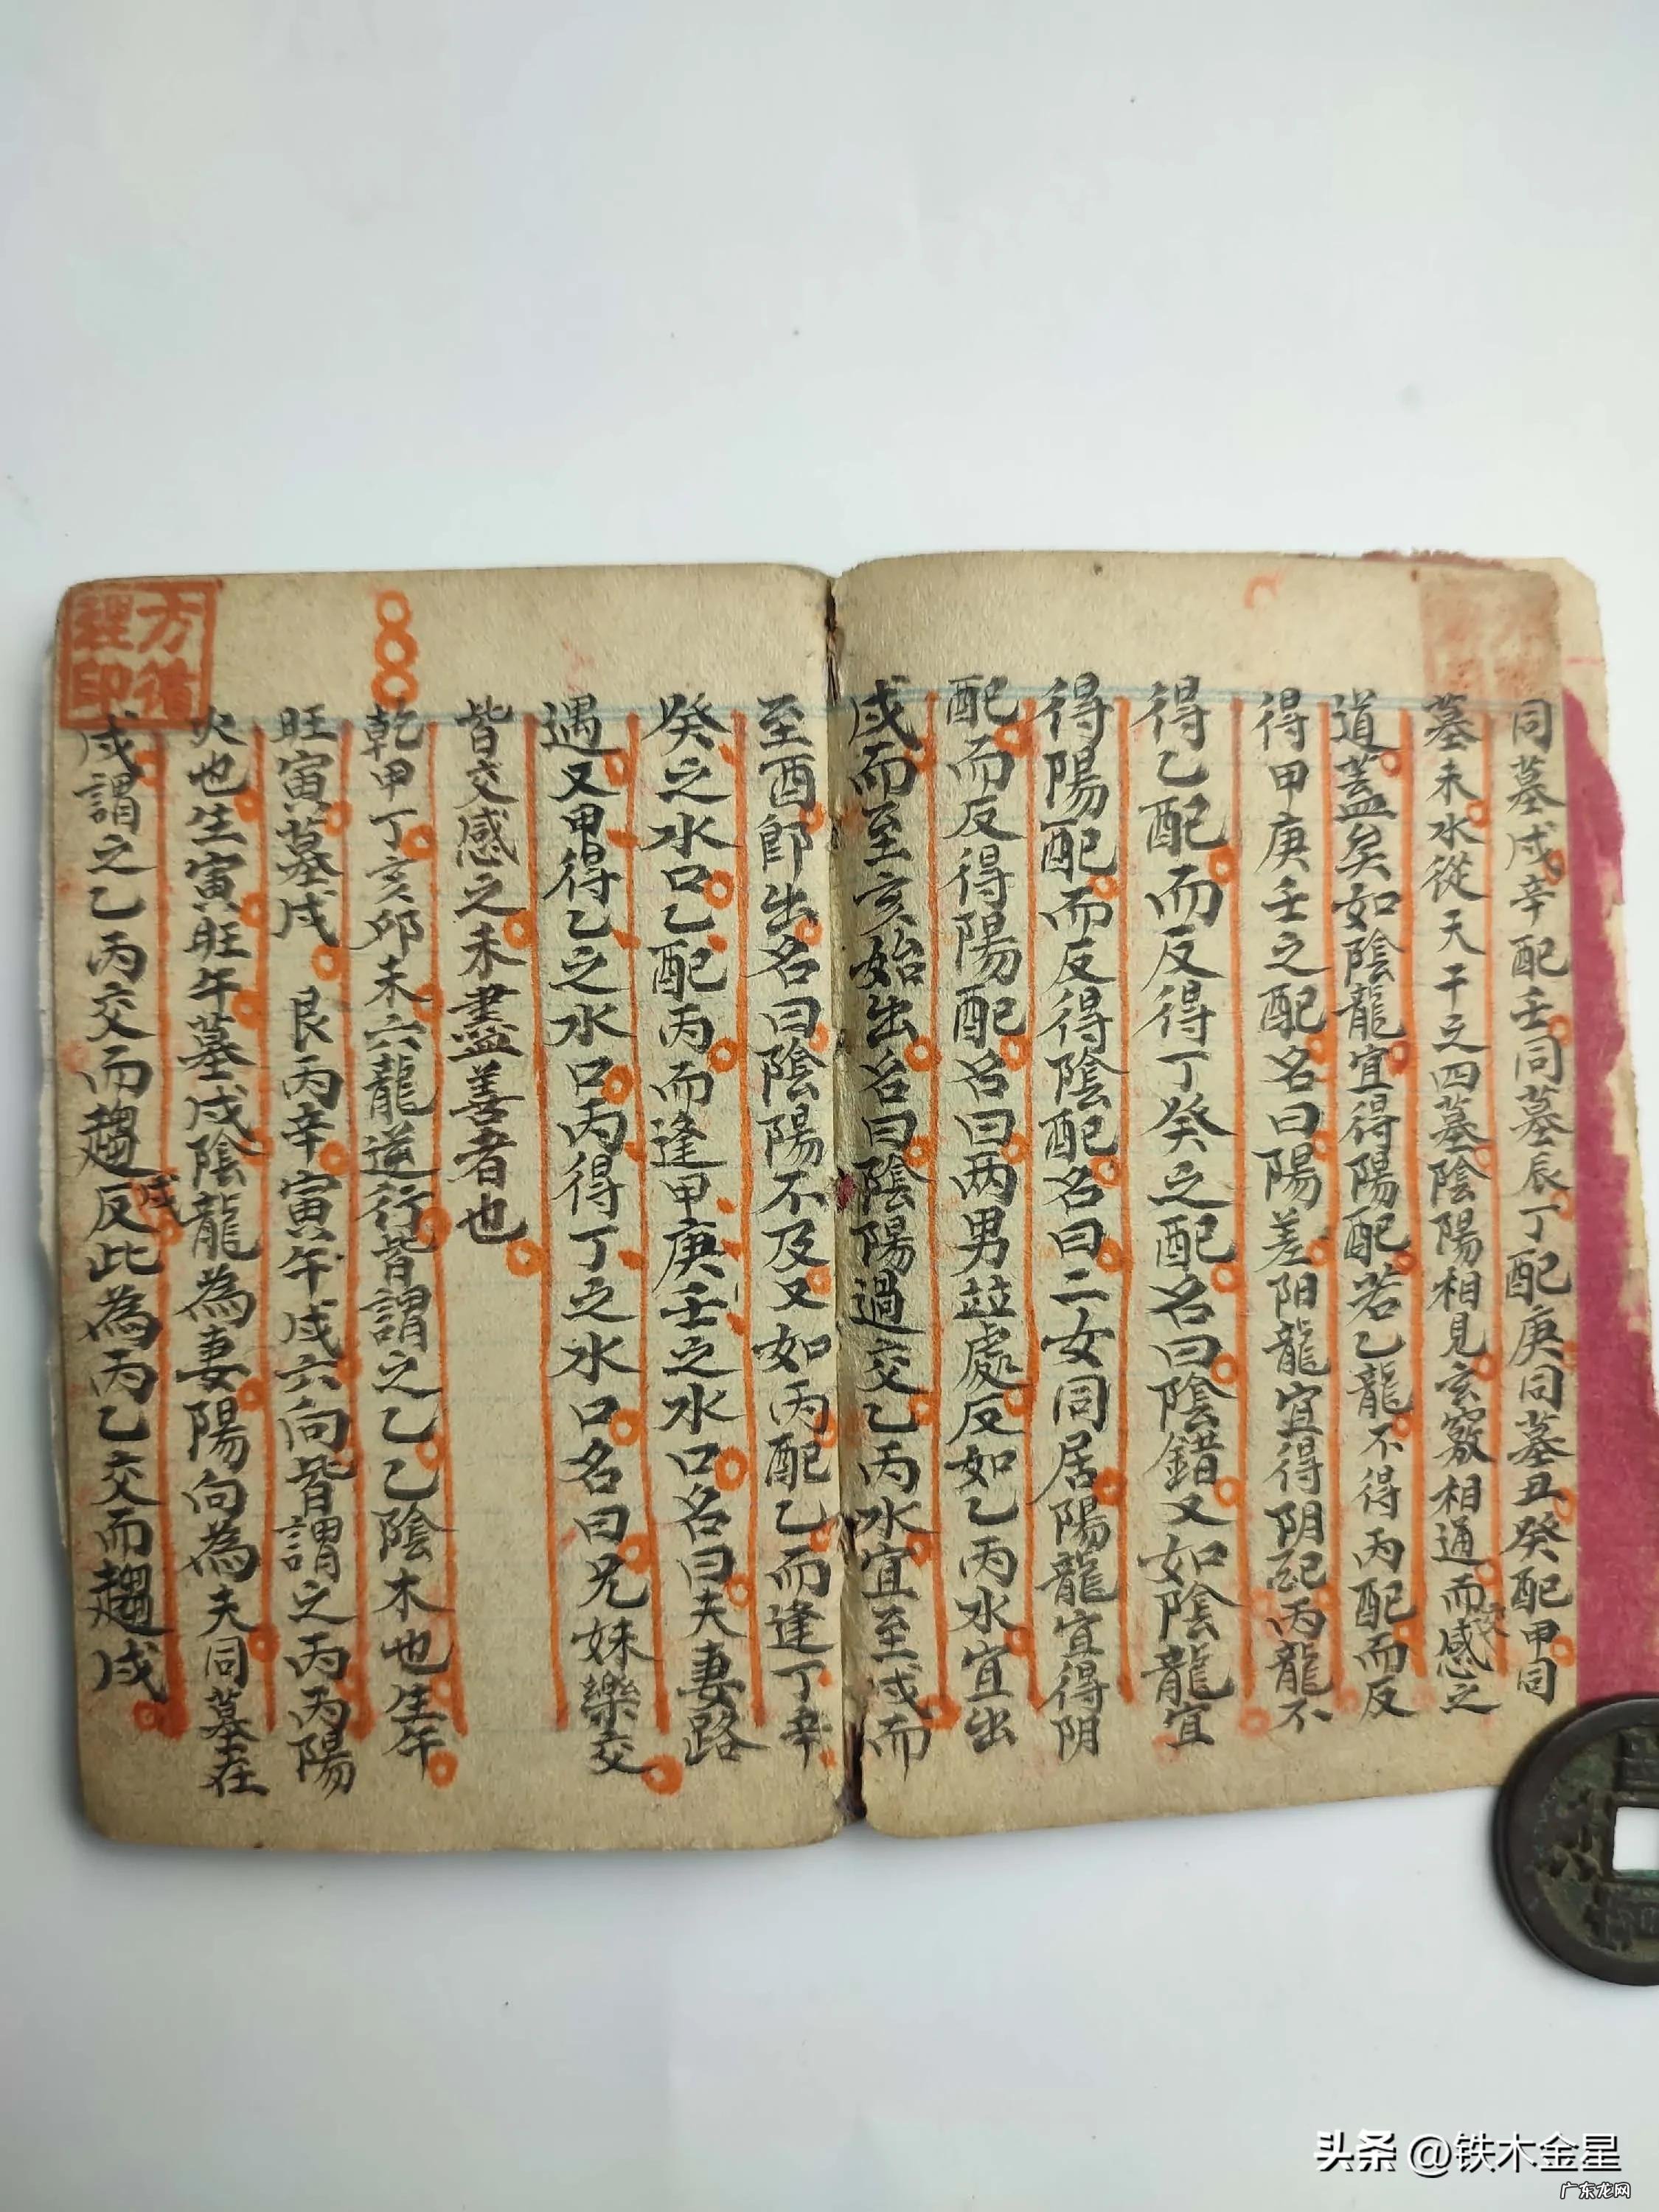 同墓戌辛配壬同墓辰丁配庚同墓丑癸配甲同
墓未水從天干之四墓陰陽相見玄竅相通而感之
道蓋矣如陰龍宜得陽配若乙龍不得丙配而反
得甲庚壬之配名曰陽差阳龍宜得阴配丙龍不
得乙配而反得丁癸之配名曰陰錯又如陰龍宜
得陽配而反得陰配名曰二女同居陽龍宜得阴
配而反得陽配名曰两男並處反如乙丙水宜出
戌而至亥始出名曰陰陽過交乙丙水宜至戌而
至酉即出名曰陰陽不及又如丙配乙而逢丁辛
癸之水口乙配丙而逢甲庚壬之水口名曰夫妻路
遇又甲得乙之水口丙得丁之水口名曰兄妹樂交
皆交感之未盡善者也
乾甲丁亥卯未六龍逆行皆謂之乙乙陰木也生午
旺寅墓戌 艮丙辛寅午戌六向皆謂之丙丙陽
火也生寅旺午墓戌陰龍為妻陽向為夫同墓在
戌謂之乙丙交而趨戌反此為丙乙交而趨戌
方
印
头条 @铁木金星
广东龙网